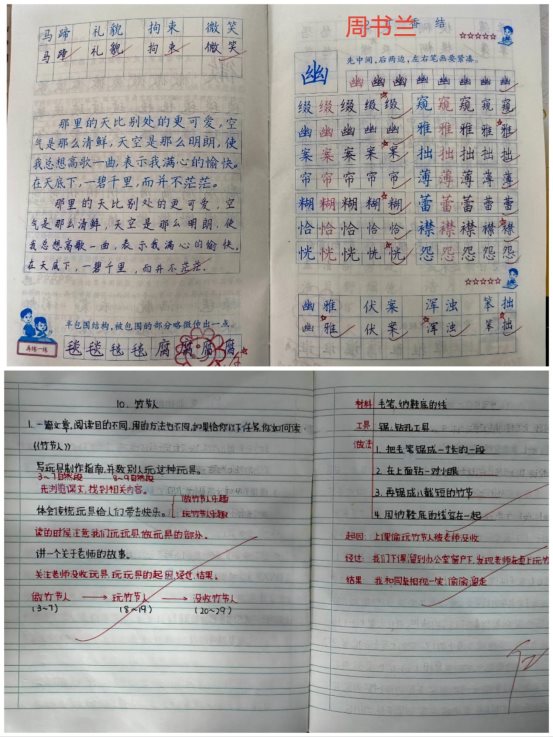 马蹄 礼貌 拘束 微笑
马蹄 礼貌 拘束 微笑
那里的天比别处的更可爱,空
气是那么清鲜,天空是那么明朗,使
我总想高歌一曲,表示我满心的愉快。
在天底下,一碧千里,而并不茫茫。
那里的天比别处的更可爱,空
气是那么清鲜,天空是那么明朗,使
我总想高歌一曲,表示我满心的愉快。
在天底下,一碧千里,而并不茫茫。
半包围结构,被包围的部分略微伸出一点。
再练一练
毯毯毯毯腐腐腐腐
周书兰
香结
先中间,后两边,左右笔画要紧凑。
幽 幽幽幽幽幽幽幽幽
缀缀缀缀缀 窥窥窥窥窥
幽幽幽幽幽 雅雅雅雅雅
案案案案案 拙拙拙拙拙
帘帘帘帘帘 薄薄薄薄薄
糊糊糊糊糊 蕾蕾蕾蕾蕾
恰恰恰恰恰 襟襟襟襟襟
恍恍恍恍恍 怨怨怨怨怨
幽雅 伏案 浑浊 笨拙
幽雅 伏案 浑浊 笨拙
10. 竹节人
1.一篇文章,阅读目的不同,用的方法也不同,如果给你以下任务,你如何读
《竹节人》
写玩具制作指南,并教别人玩这种玩具。
3~7自然段 8~9自然段
先浏览课文,找到相关内容。
做竹节人乐趣
体会传统玩具给人们带去快乐。
玩竹节人乐趣
读的时候注意我们玩玩具、做玩具的部分。
讲一个关于老师的故事。
关注老师没收玩具、玩玩具的起因、经过、结果。
做竹节人 → 玩竹节人 → 没收竹节人
(3~7) (8~19) (20~29)
材料 毛笔、纳鞋底的线
工具 锯、钻孔工具
做法 1. 把毛笔锯成一寸长的一段
2. 在上面钻一对小眼
3. 再锯成八截短的竹节
4. 用纳鞋底的线穿在一起
起因: 上课偷玩竹节人被老师没收
经过: 我们下课溜到办公室窗户下,发现老师在桌上玩竹
结果 我和同桌相视一笑,偷偷溜走